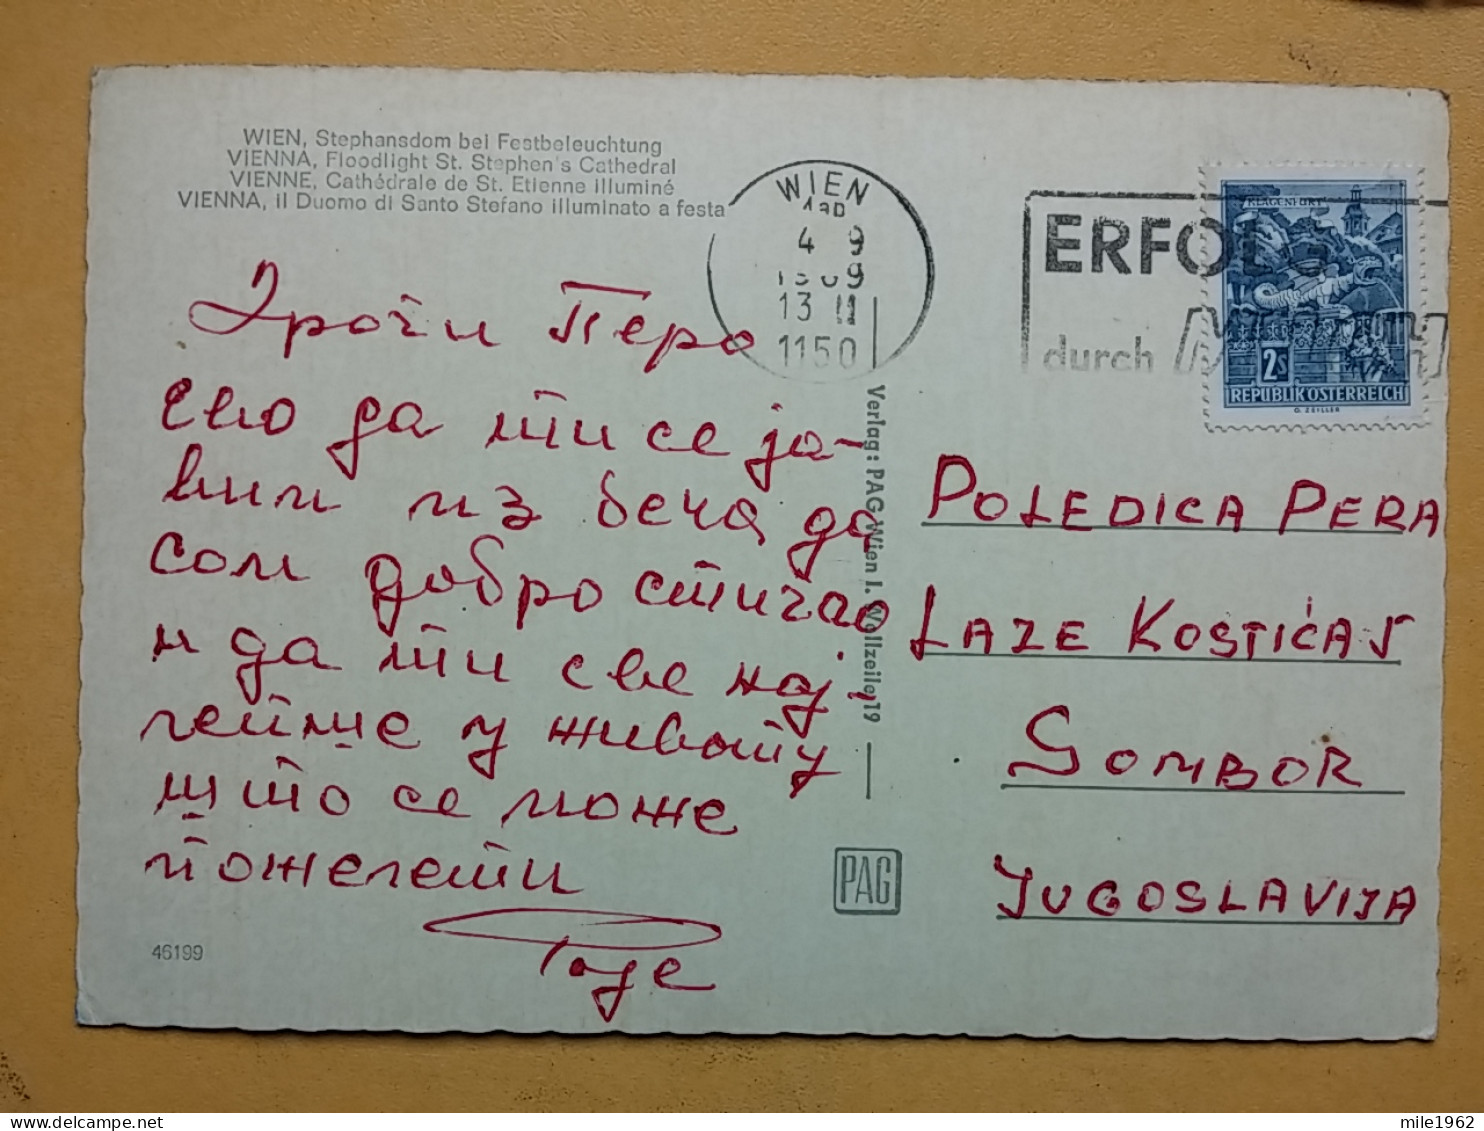 WIEN, Stephansdom bei Festbeleuchtung
VIENNA, Floodlight St. Stephen's Cathedral
VIENNE, Cathédrale de St. Etienne illuminé
VIENNA, il Duomo di Santo Stefano illuminato a festa
WIEN
4 9
13
1150
ERFOLG
durch
KLAGENFURT
2s
REPUBLIK ÖSTERREICH
G. ZEILLER
Перо
ево да ти се ја-
вим из беча да
сам добро стигао
и да ти све нај
лепше у животу
што се може
пожелети
46199
Verlag: PAG Wien I. Wollzeile 19
PAG
POLEDICA PERA
LAZE KOSTIĆA 5
SOMBOR
JUGOSLAVIJA
mile1962